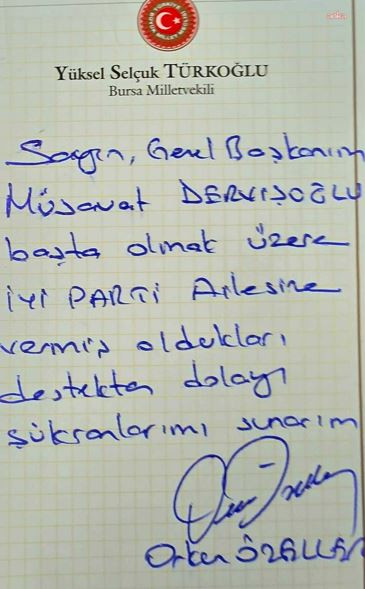 Yüksel Selçuk TÜRKOĞLU
Bursa Milletvekili
Sayın, Genel Başkanım
Müsavat DERVİŞOĞLU
başta olmak üzere
İYİ PARTİ Ailesine
vermiş oldukları
destekten dolayı
şükranlarımı sunarım